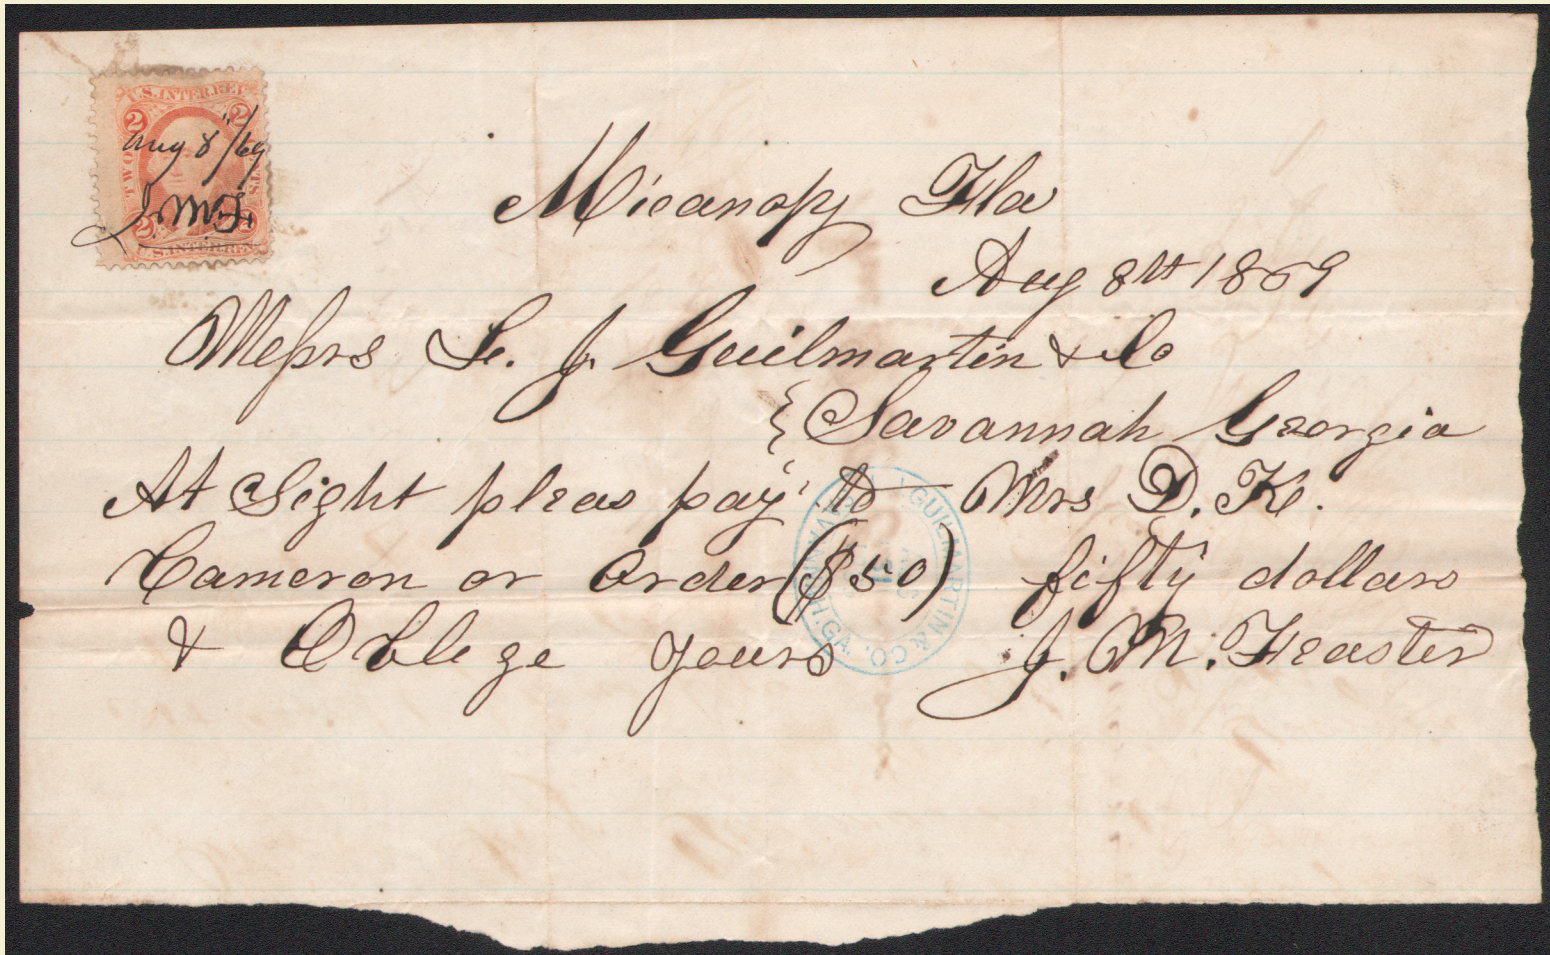 U.S. INTER. REV.
2 2
TWO CENTS
Aug 8"/69
J. M. F.
2 2
U.S. INTER. REV.
Micanopy Fla
Aug 8th 1869
Messrs L. J. Guilmartin & Co
{ Savannah Georgia
At Sight pleas pay to Mrs D. K.
Cameron or order ($50) fifty dollars
& Oblege yours J. M. Feaster
GUILMARTIN & CO.
SAVANNAH, GA.